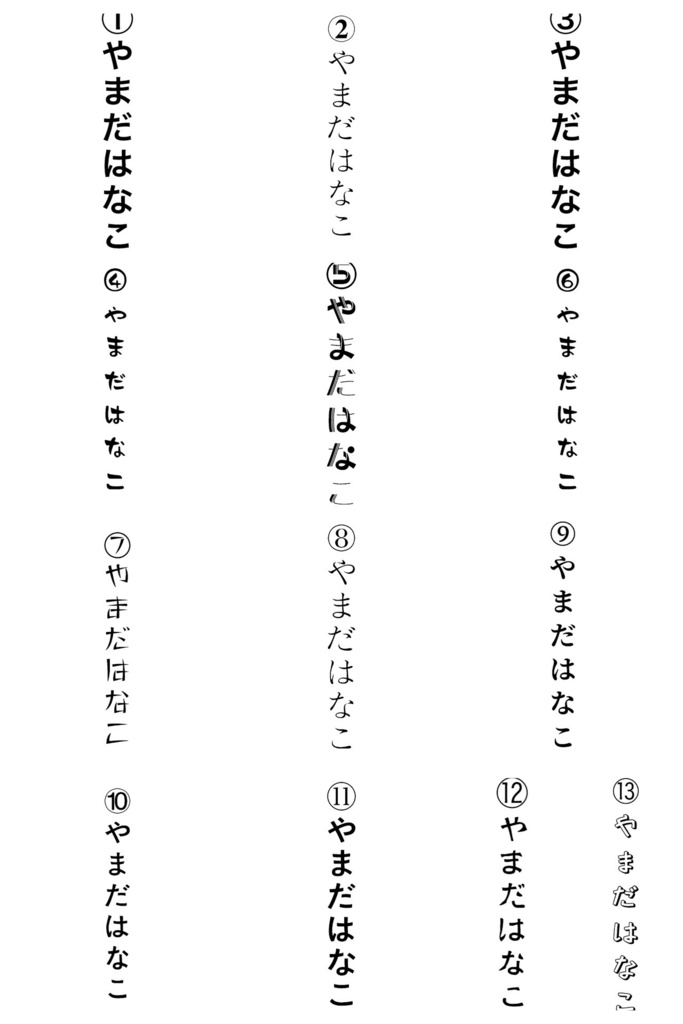 ①やまだはなこ
②やまだはなこ
③やまだはなこ
④やまだはなこ
⑤やまだはなこ
⑥やまだはなこ
⑦やまだはなこ
⑧やまだはなこ
⑨やまだはなこ
⑩やまだはなこ
⑪やまだはなこ
⑫やまだはなこ
⑬やまだはなこ